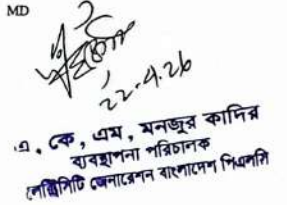 MD
22.9.26
এ, কে, এম, মনজুর কাদির
ব্যবস্থাপনা পরিচালক
জেনারেশন বাংলাদেশ পিএলসি